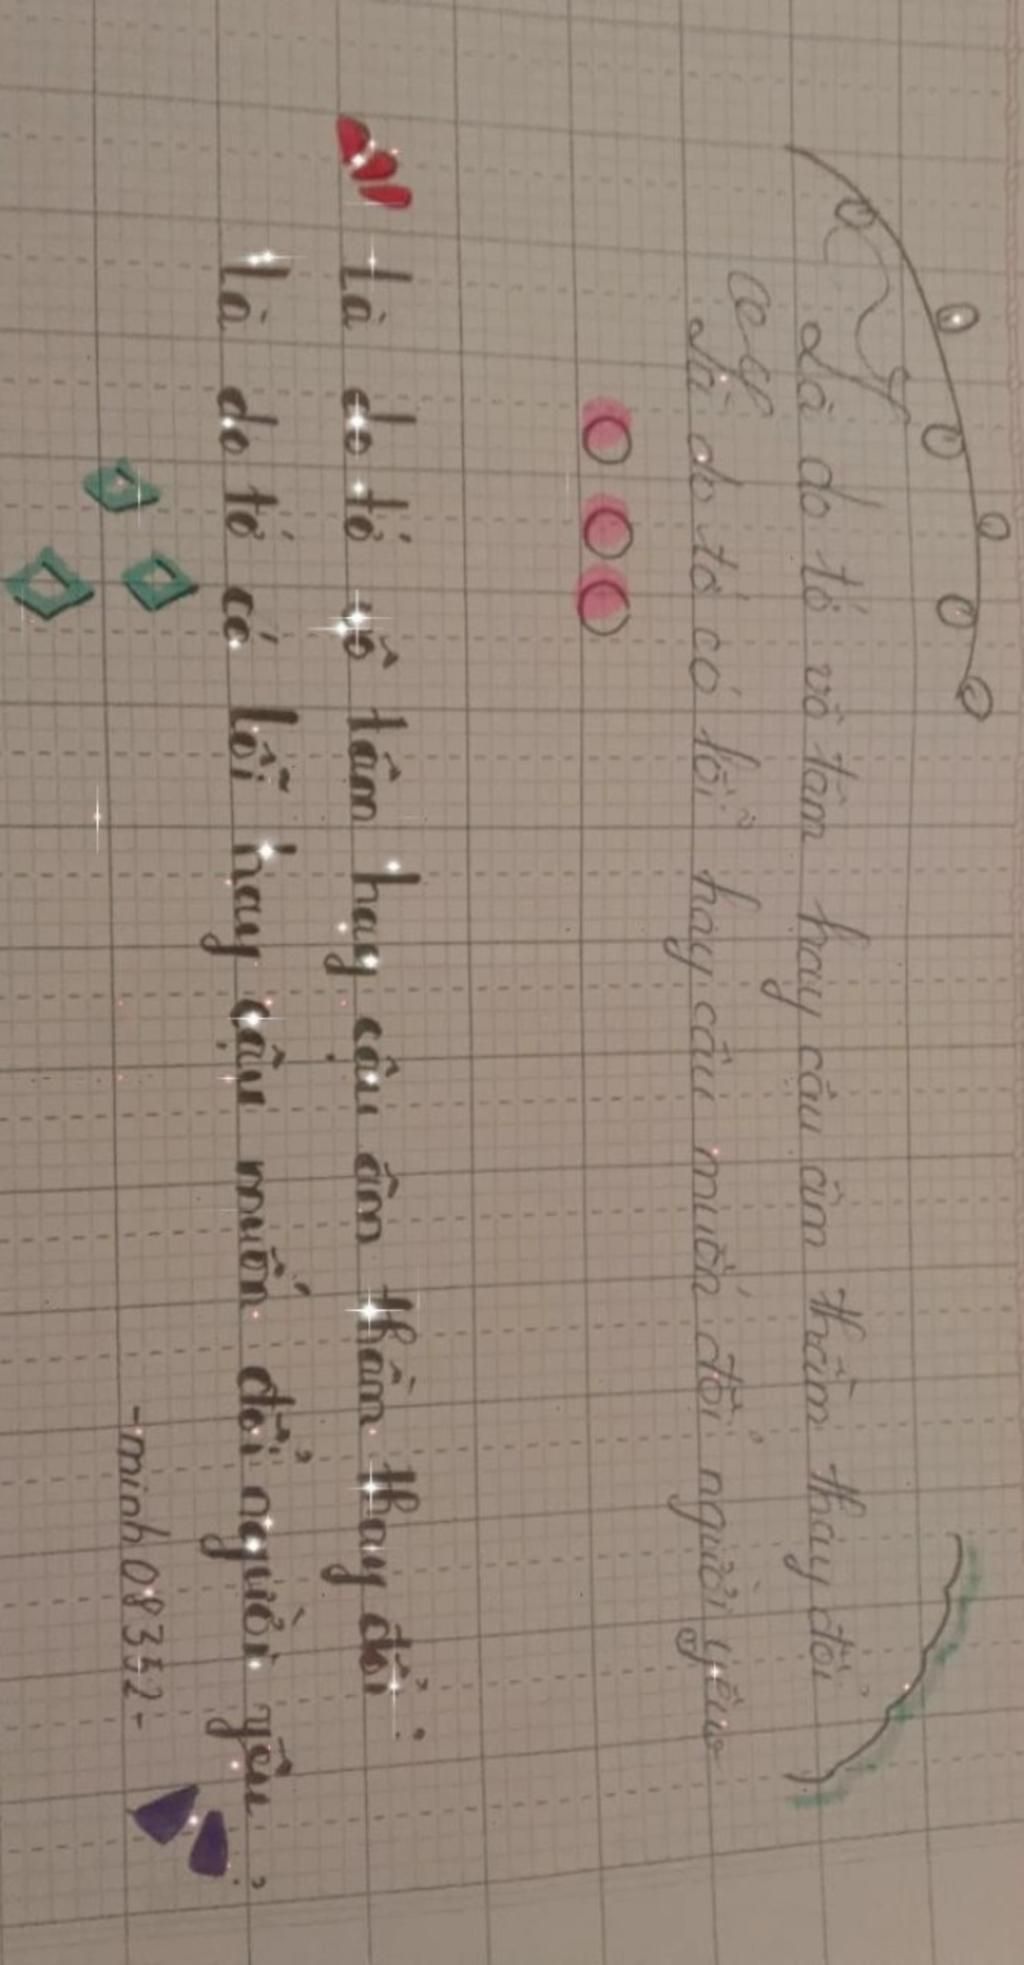 Là do tớ vô tâm hay cậu âm thầm thay đổi
Là do tớ có lỗi hay cậu muốn đổi người yêu
Là do tớ vô tâm hay cậu âm thầm thay đổi
là do tớ có lỗi hay cậu muốn đổi người yêu
-minh08332-